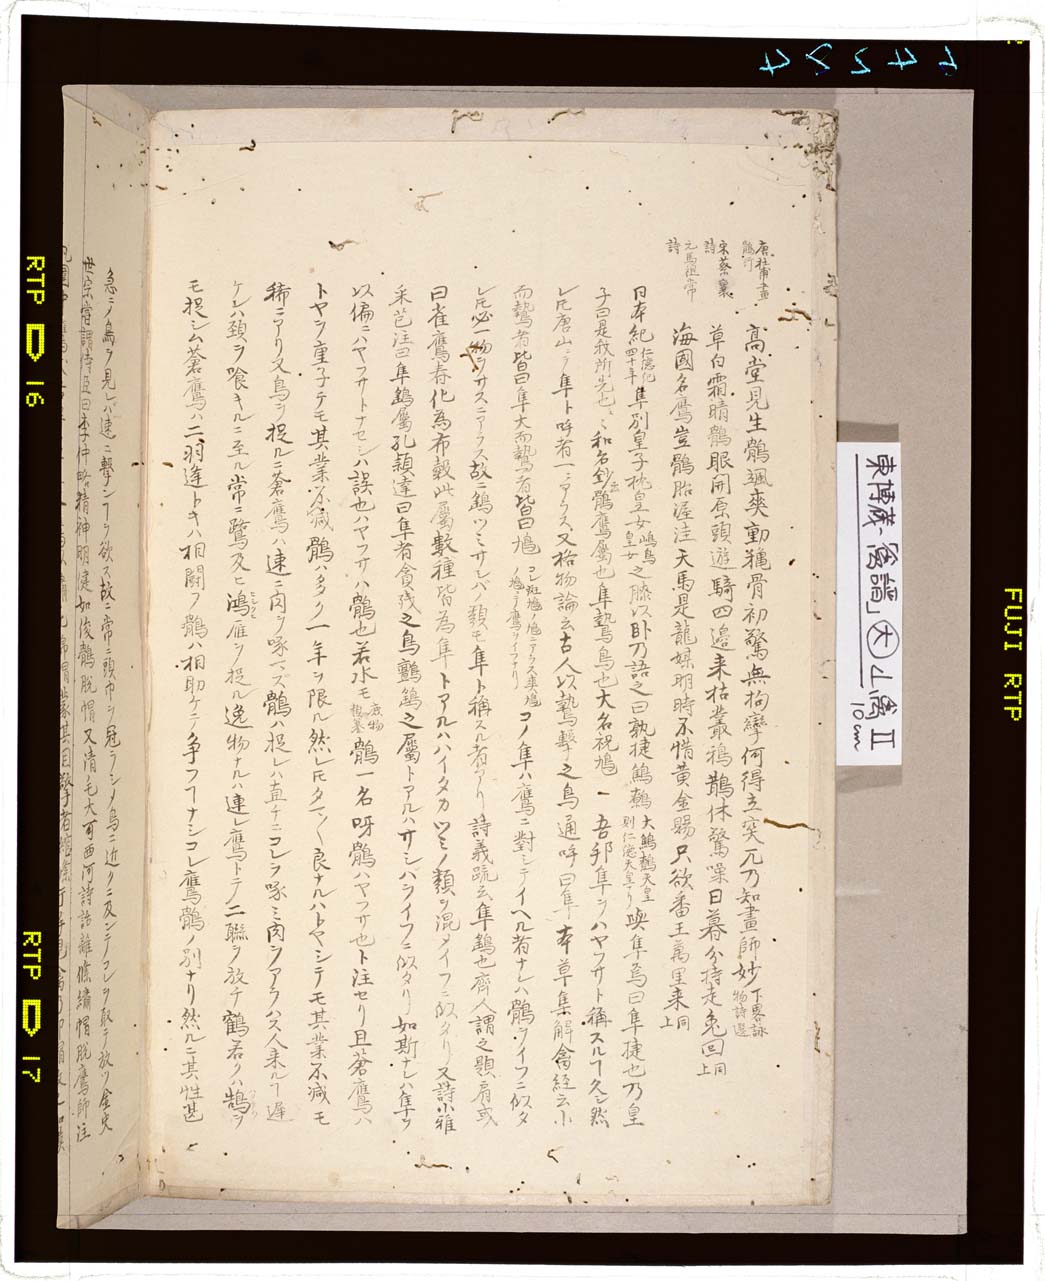 唐杜甫畫鶻行
高堂見生鶻颯爽動龝骨初驚無拘攣何得立突兀乃知畫師妙 下畧詠物詩選
宋蔡襄詩
草白霜晴鶻眼開原頭遊騎四邉来枯叢鴉鵲休驚噪日暮分持走兎回 同上
元馬祖常詩
海國名鷹豈鶻胎渥洼天馬是龍媒明時不惜黄金賜只欲番王萬里来 同上
日本紀 仁德紀四十年 隼別皇子枕皇女 雌鳥皇女 之膝以卧乃語之曰孰捷鷦鷯 大鷦鷯天皇則仁德天皇ナリ 與隼焉曰隼捷也乃皇
子曰是我所先也 和名鈔云鶻鷹屬也隼鷙鳥也大名祝鳩 一 吾邦隼ヲハヤフサト稱スルヿ久シ然
レ𪜈唐山ニテ隼ト呼者一ニアラス又格物論云古人以鷙擊之鳥通呼曰隼本草集解禽経云小
而鷙者皆曰隼大而鷙者皆曰鳩 コノ隼ハ鷹ニ對シテイヘル者ナレハ鶻ヲイフニ似タ
レ𪜈必一物ヲサスニアラス故ニ鷂ツミサシバノ類モ隼ト稱スル者アリ詩義疏云隼鷂也齊人謂之題肩或
曰雀鷹春化為布穀此屬數種皆為隼トアルハハイタカツミノ類ヲ混メイフニ似タリ又詩小雅
采芑注曰隼鷂屬孔頴達曰隼者貪残之鳥鸇鷂之屬トアルハサシバヲイフニ似タリ如斯ナレハ隼ヲ
以偏ニハヤフサトナセシハ誤也ハヤフサハ鶻也若水モ 鶻一名呀鶻ハヤフサ也ト注セリ且蒼鷹ハ
トヤヲ重子テモ其業不減鶻ハ多ク一年ヲ限ル然レ𪜈タマタマ良ナルハトヤシテモ其業不減モ
稀ニアリ又鳥ヲ捉ルニ蒼鷹ハ速ニ肉ヲ啄マズ鶻ハ捉レハ直チニコレヲ啄ミ肉ヲアラハス人来ルヿ遲
ケレハ頚ヲ喰キルニ至ル常ニ鷺及ヒ鴻雁ヲ捉ル逸物ナルハ連レ鷹トテ二聯ヲ放チ鶴若クハ鵠ヲ
モ捉シム蒼鷹ハ二羽逢トキハ相鬭フ鶻ハ相助ケテ争フヿナシコレ鷹鶻ノ別ナリ然ルニ其性甚
急ニメ鳥ヲ見レバ速ニ擊ンヿヲ欲ス故ニ常ニ頭巾ヲ冠ラシメ鳥ニ近クニ及ンテコレヲ取テ放ツ金史
世宗嘗謂侍臣曰李仲略精神明健如俊鶻脱帽又清毛大可西河詩話離絛繡帽脱鷹師注
東博蔵「禽譜」大 山禽 Ⅱ
10cm
4424
RTP 16
RTP 17
FUJI RTP